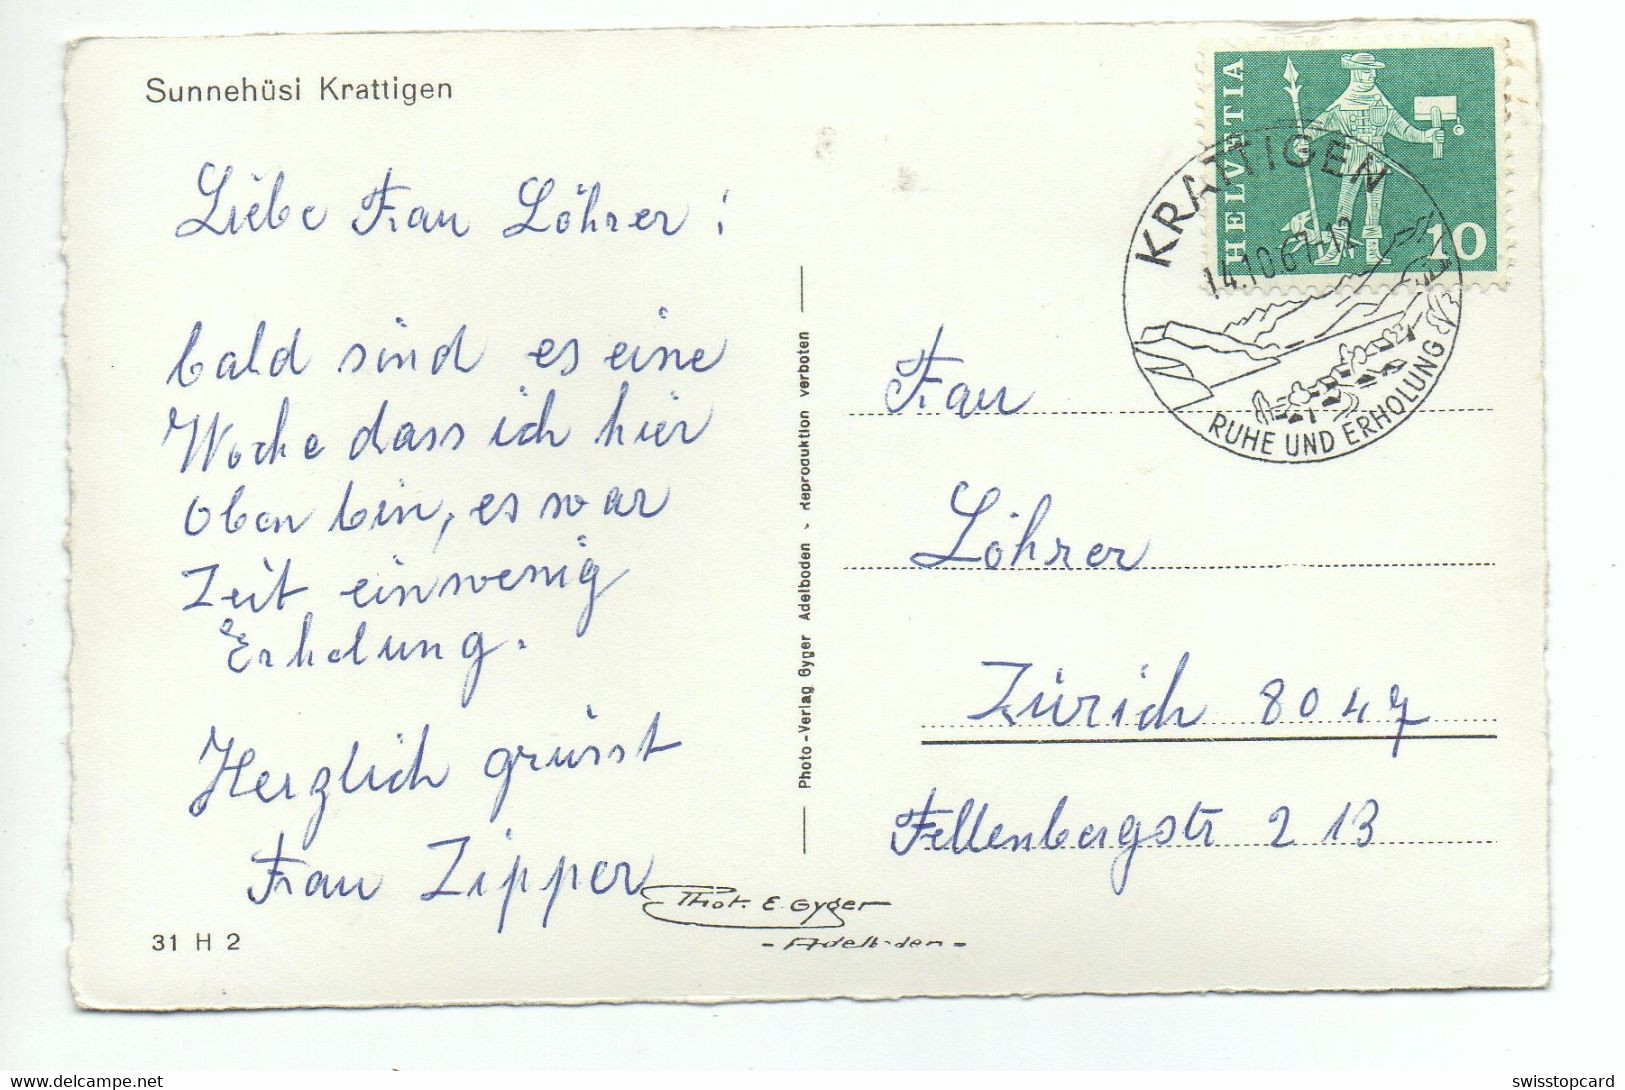 Sunnehüsi Krattigen
Liebe Frau Löhrer !
bald sind es eine
Woche dass ich hier
oben bin, es war
Zeit ein wenig
Erholung.
Herzlich grüsst
Frau Zipper
31 H 2
Phot. E. Gyger
- Adelboden -
Photo-Verlag Gyger Adelboden - Reproduktion verboten
HELVETIA
10
KRATTIGEN
14.10.67-12
RUHE UND ERHOLUNG
Frau
Löhrer
Zürich 8047
Fellenbergstr 213
www.delcampe.net
swisstopcard